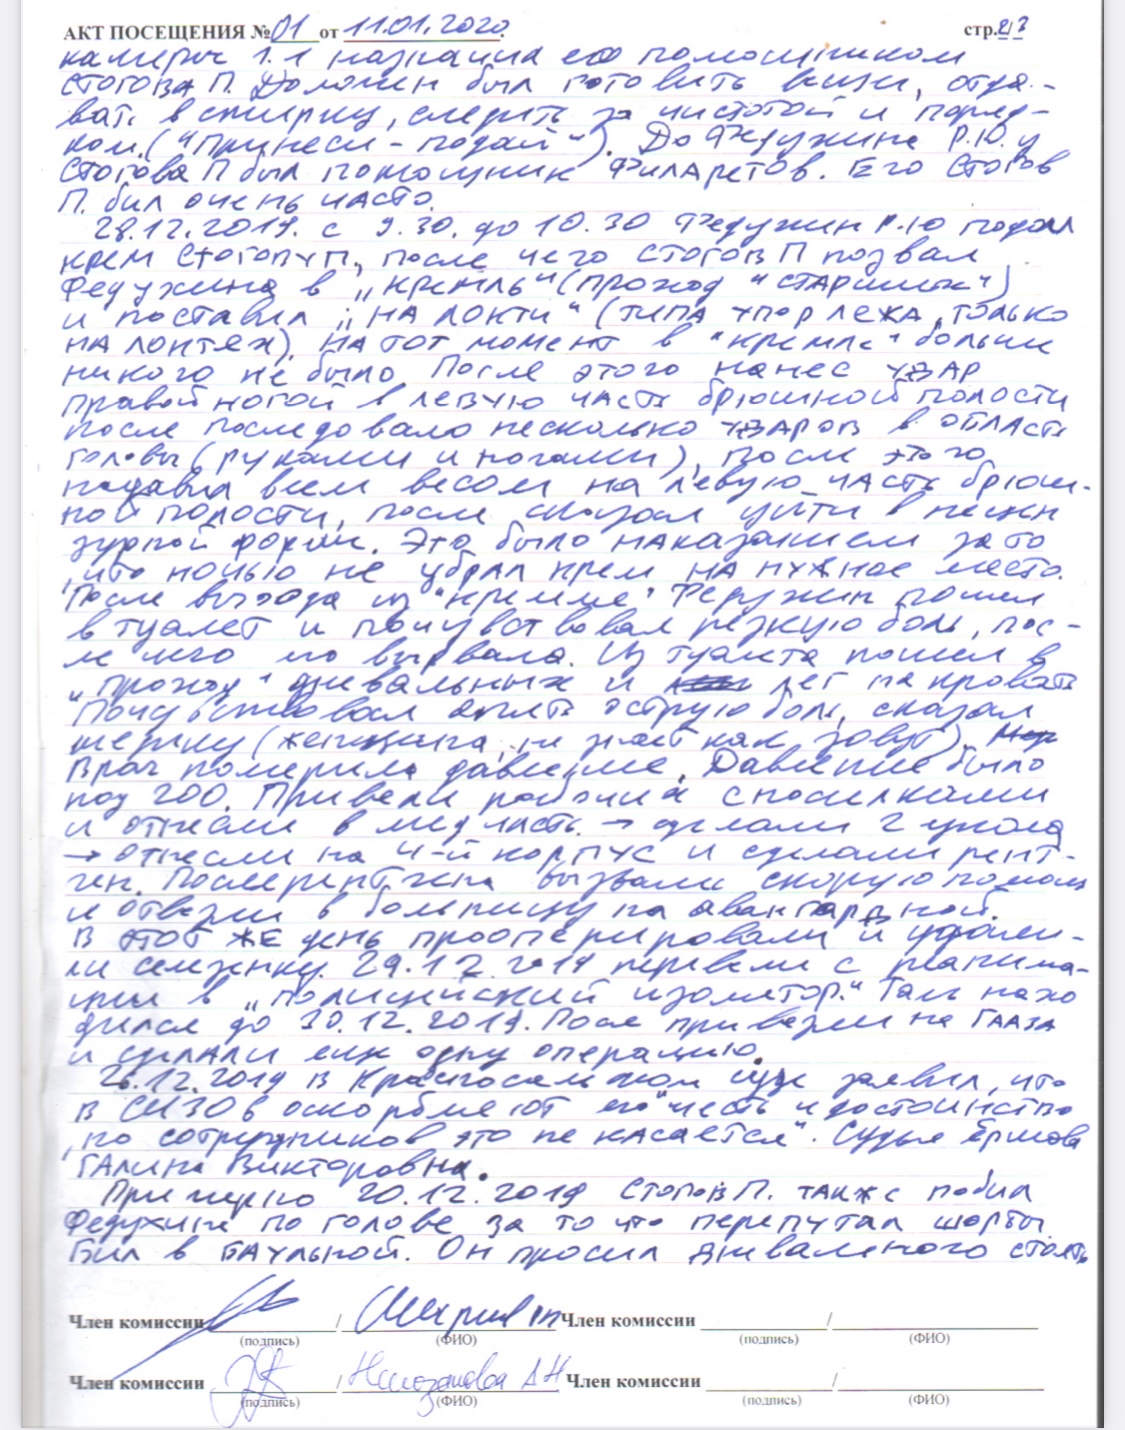 АКТ ПОСЕЩЕНИЯ № 01 от 11.01.2020. стр. 2/3
камеры 1.1 назначил его помощником
Стогова П. Должен был готовить вещи, отда-
вать в стирку, следить за чистотой и поряд-
ком. ("Принеси-подай"). До Федухина Р.Ю. у
Стогова П был помощник Филаретов. Его Стогов
П. бил очень часто.
28.12.2019. с 9.30. до 10.30 Федухин Р.Ю подал
крем Стогову П., после чего Стогов П позвал
Федухина в „Кремль“ (проход "старших")
и поставил „на локти“ (типа упор лежа, только
на локтях). На тот момент в "Кремле" больше
никого не было После этого нанес удар
правой ногой в левую часть брюшной полости
после последовало несколько ударов в область
головы (руками и ногами), после этого
надавил всем весом на левую часть брюш-
ной полости, после сказал уйти в
форме. Это было наказанием за то
, что ночью не убрал крем на нужное место.
После выхода из "Кремля" Федухин пошел
в туалет и почувствовал резкую боль, пос-
ле чего его вырвало. Из туалета пошел в
„проход“ дневальных и лег на кровать
Почувствовал опять острую боль, сказал
медику (женщина, не знает как зовут).
Врач померила давление. Давление было
под 200. Привели рабочих с носилками
и отнесли в медчасть. → сделали 2 укола
→ отнесли на 4-й корпус и сделали рент-
ген. После рентгена вызвали скорую помощь
и отвезли в больницу на Авангардной.
В этот же день прооперировали и удали-
ли селезенку. 29.12.2019 перевели с реанима-
ции в „полицейский изолятор.“ Там нахо
дился до 30.12.2019. После привезли на Гааза
и сделали еще одну операцию.
26.12.2019 в Красносельском суде заявил, что
в СИЗО 6 оскорбляют его "честь и достоинство
, но сотрудников это не касается". Судья Ершова
Галина Викторовна.
Примерно 20.12.2019 Стогов П. также побил
Федухина по голове за то что перепутал шорты
Бил в баульной. Он просил дневального стоять
Член комиссии / Член комиссии /
(подпись) (ФИО) (подпись) (ФИО)
Член комиссии / Член комиссии /
(подпись) (ФИО) (подпись) (ФИО)